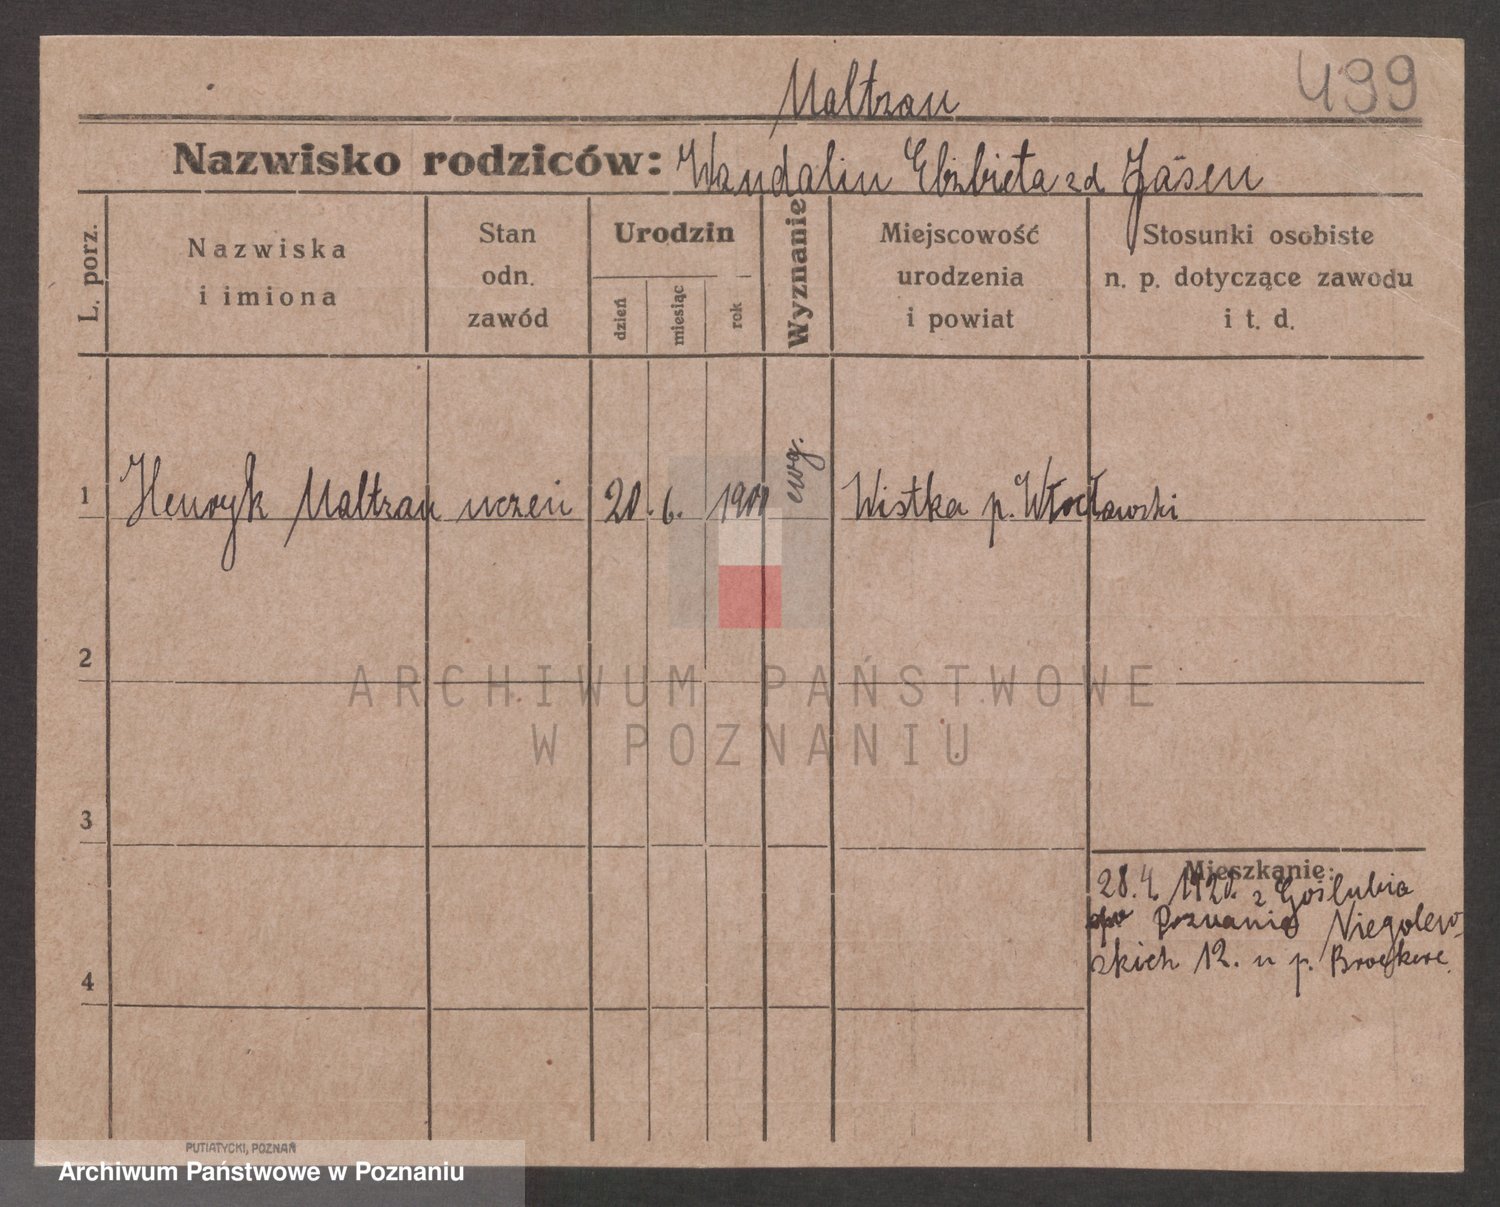 499
Maltzan
Nazwisko rodziców: Wandalin Elżbieta zd Jäsen
L. porz.
Nazwiska
i imiona
Stan
odn.
zawód
Urodzin
dzień
miesiąc
rok
Wyznanie
Miejscowość
urodzenia
i powiat
Stosunki osobiste
n. p. dotyczące zawodu
i t. d.
1 Henryk Maltzan uczeń 20. 6. ewg. Wistka p. Włocławski
2
3
4
ARCHIWUM PAŃSTWOWE
W POZNANIU
Mieszkanie:
28.4. z Goślubia
Poznania Niegolew-
skich 12. u p.
PUTIATYCKI, POZNAŃ
Archiwum Państwowe w Poznaniu